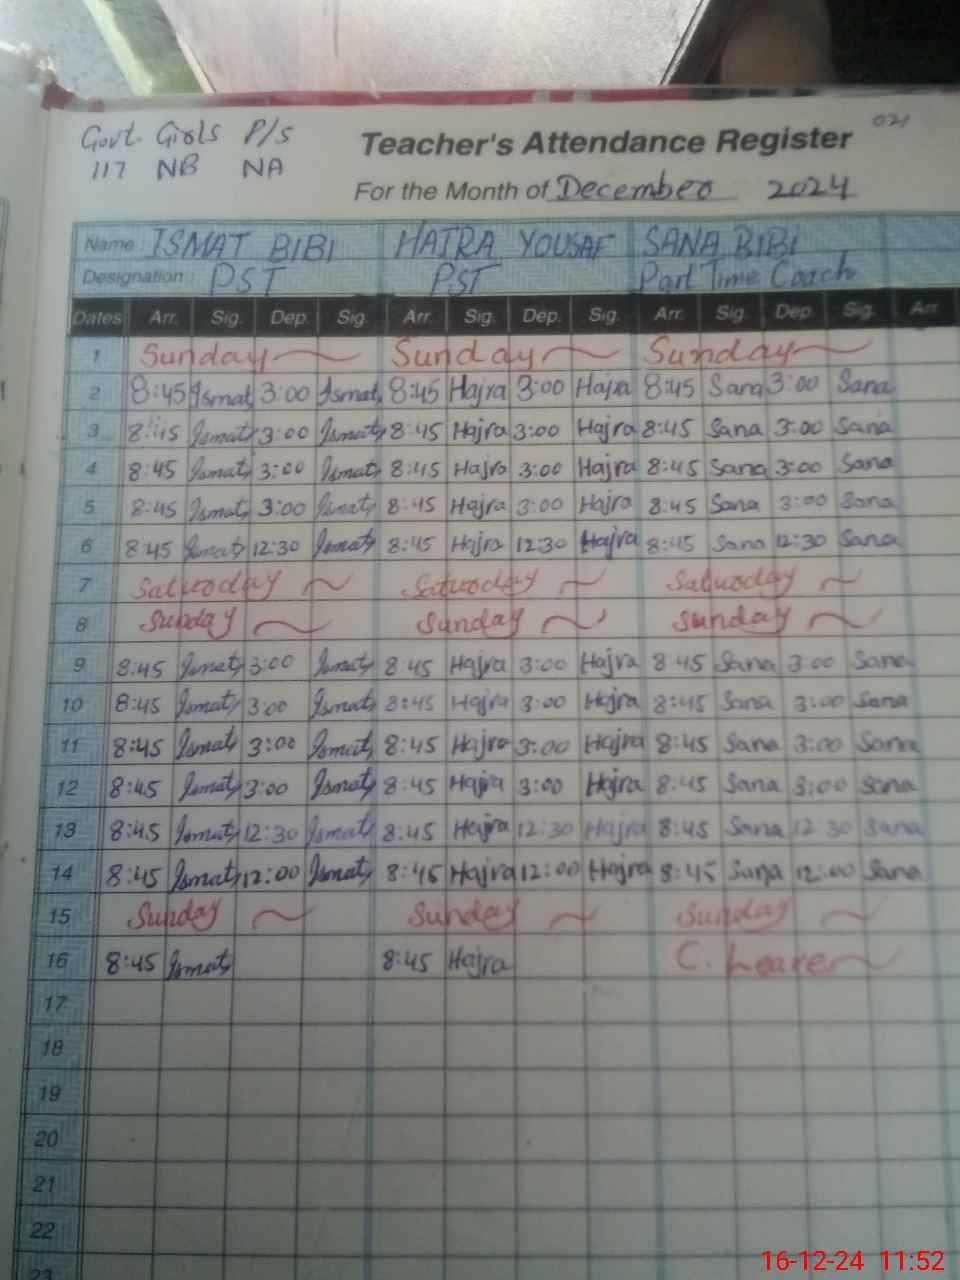 Govt. Girls P/S
117 NB NA
021
Teacher's Attendance Register
For the Month of December 2024
Name : ISMAT BIBI HAJRA YOUSAF SANA BIBI
Designation : PST PST Part Time Coach
Dates Arr. Sig. Dep. Sig. Arr. Sig. Dep. Sig. Arr. Sig. Dep. Sig. Arr.
1 Sunday Sunday Sunday
2 8:45 Ismat 3:00 Ismat 8:45 Hajra 3:00 Hajra 8:45 Sana 3:00 Sana
3 8:45 Ismat 3:00 Ismat 8:45 Hajra 3:00 Hajra 8:45 Sana 3:00 Sana
4 8:45 Ismat 3:00 Ismat 8:45 Hajra 3:00 Hajra 8:45 Sana 3:00 Sana
5 8:45 Ismat 3:00 Ismat 8:45 Hajra 3:00 Hajra 8:45 Sana 3:00 Sana
6 8:45 Ismat 12:30 Ismat 8:45 Hajra 12:30 Hajra 8:45 Sana 12:30 Sana
7 Saturday Saturday Saturday
8 Sunday Sunday Sunday
9 8:45 Ismat 3:00 Ismat 8:45 Hajra 3:00 Hajra 8:45 Sana 3:00 Sana
10 8:45 Ismat 3:00 Ismat 8:45 Hajra 3:00 Hajra 8:45 Sana 3:00 Sana
11 8:45 Ismat 3:00 Ismat 8:45 Hajra 3:00 Hajra 8:45 Sana 3:00 Sana
12 8:45 Ismat 3:00 Ismat 8:45 Hajra 3:00 Hajra 8:45 Sana 3:00 Sana
13 8:45 Ismat 12:30 Ismat 8:45 Hajra 12:30 Hajra 8:45 Sana 12:30 Sana
14 8:45 Ismat 12:00 Ismat 8:45 Hajra 12:00 Hajra 8:45 Sana 12:00 Sana
15 Sunday Sunday Sunday
16 8:45 Ismat 8:45 Hajra C. Leave
17
18
19
20
21
22
23
16-12-24 11:52